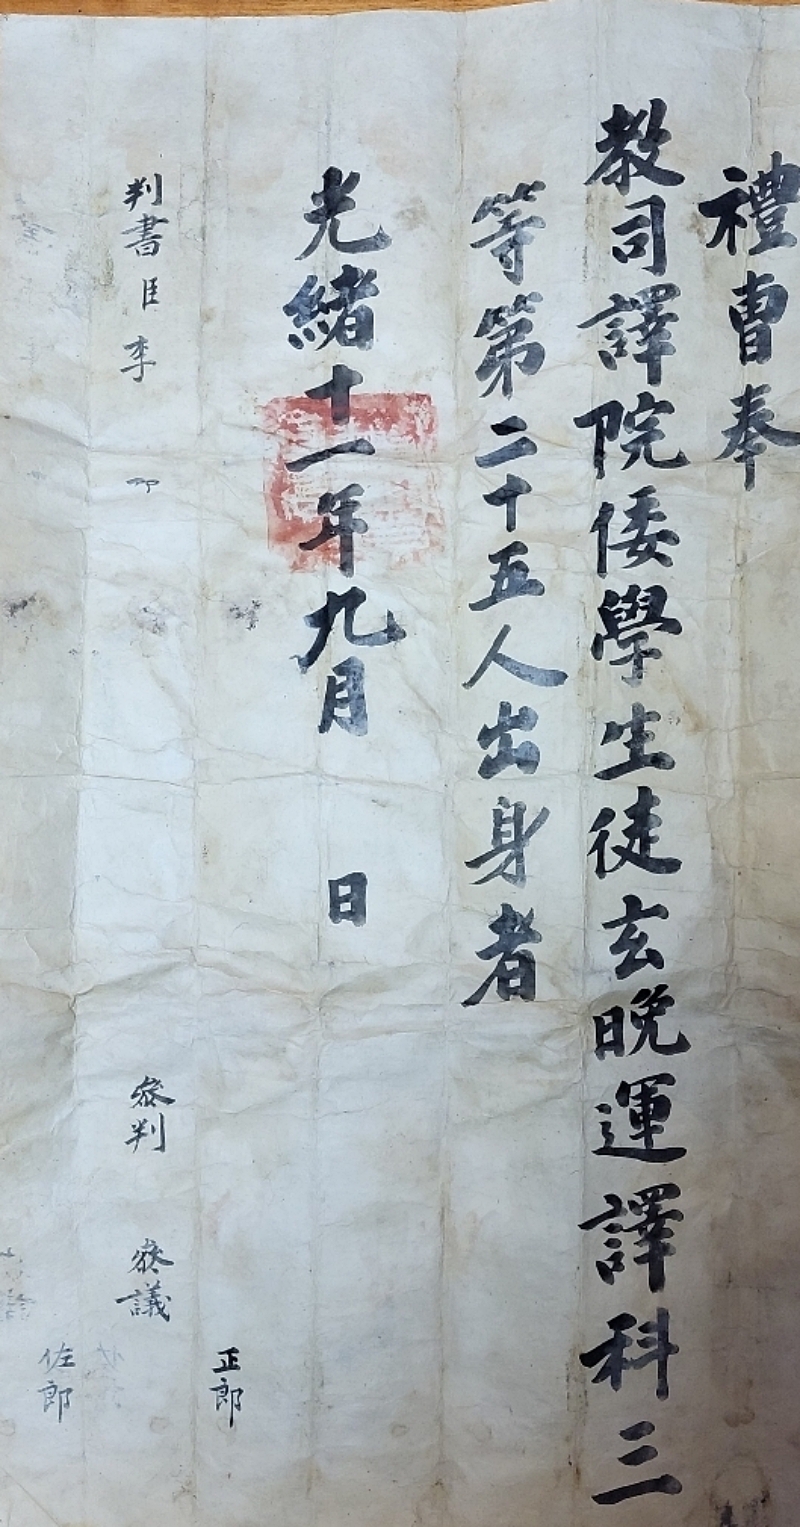 禮曹奉
教司譯院倭學生徒玄晩運譯科三
等第二十五人出身者
光緒十一年九月 日
正郎
判書臣李 參判 參議
佐郎